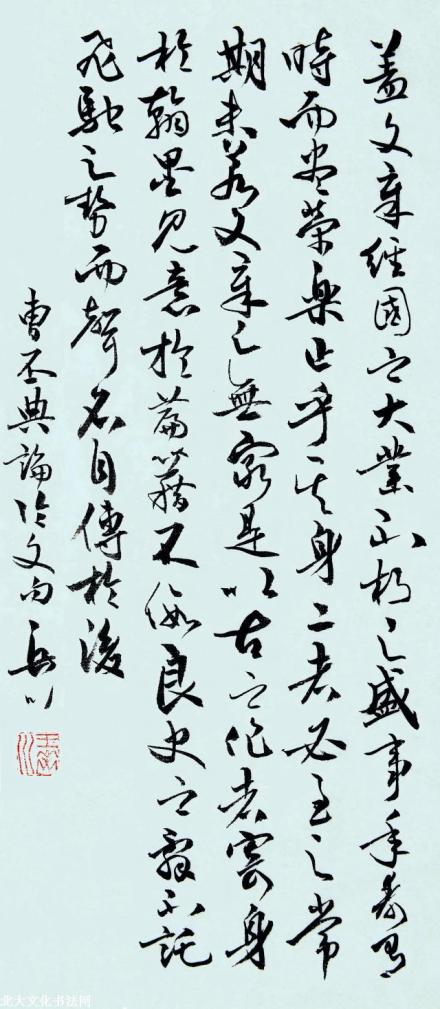 蓋文章經國之大業不朽之盛事年壽有
時而盡榮樂止乎其身二者必至之常
期未若文章之無窮是以古之作者寄身
於翰墨見意於篇籍不假良史之辭不託
飛馳之勢而聲名自傳於後
曹丕典論論文句岳川
北大文化书法网